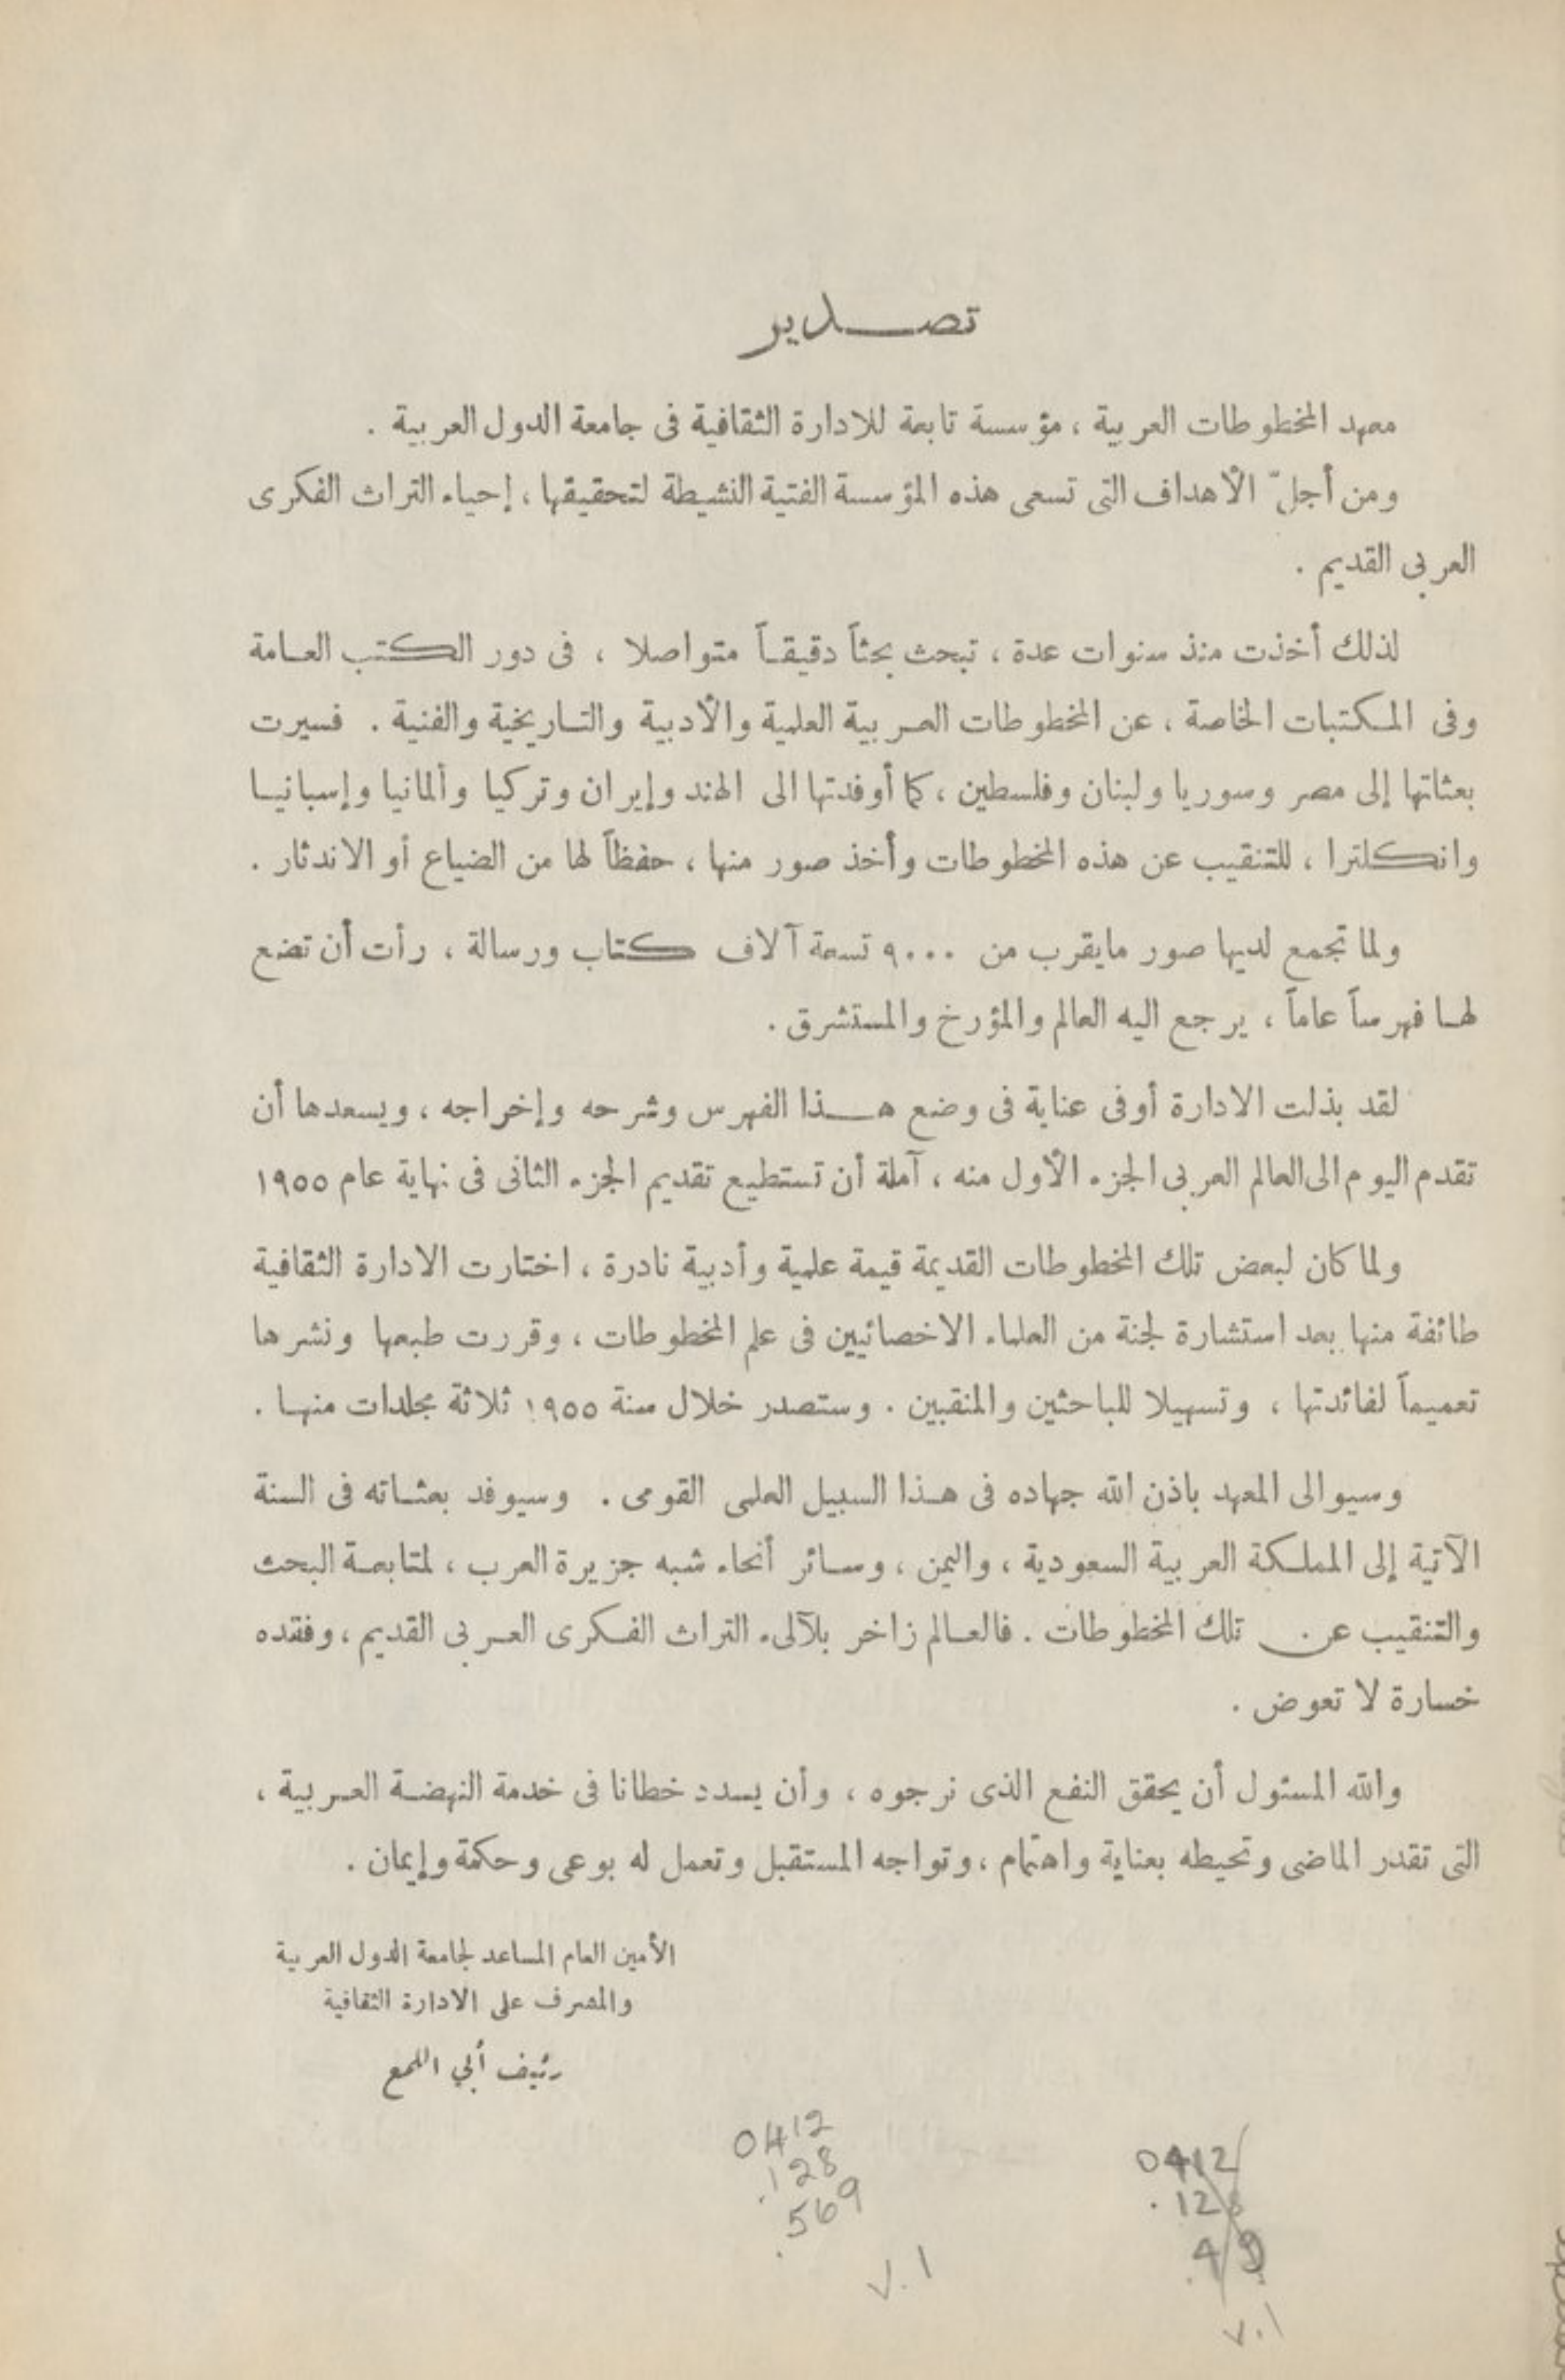 تصدير
معهد المخطوطات العربية ، مؤسسة تابعة للادارة الثقافية فى جامعة الدول العربية .
ومن أجلّ الأهداف التى تسعى هذه المؤسسة الفتية النشيطة لتحقيقها ، إحياء التراث الفكرى
العربى القديم .
لذلك أخذت منذ سنوات عدة ، تبحث بحثاً دقيقاً متواصلا ، فى دور الكتب العامة
وفى المكتبات الخاصة ، عن المخطوطات العربية العلمية والأدبية والتاريخية والفنية . فسيرت
بعثاتها إلى مصر وسوريا ولبنان وفلسطين ، كما أوفدتها الى الهند وإيران وتركيا وألمانيا وإسبانيا
وانكلترا ، للتنقيب عن هذه المخطوطات وأخذ صور منها ، حفظاً لها من الضياع أو الاندثار .
ولما تجمع لديها صور مايقرب من ٩٠٠٠ تسعة آلاف كتاب ورسالة ، رأت أن تضع
لها فهرساً عاماً ، يرجع اليه العالم والمؤرخ والمستشرق .
لقد بذلت الادارة أوفى عناية فى وضع هذا الفهرس وشرحه وإخراجه ، ويسعدها أن
تقدم اليوم الى العالم العربى الجزء الأول منه ، آملة أن تستطيع تقديم الجزء الثانى فى نهاية عام ١٩٥٥
ولما كان لبعض تلك المخطوطات القديمة قيمة علمية وأدبية نادرة ، اختارت الادارة الثقافية
طائفة منها بعد استشارة لجنة من العلماء الاخصائيين فى علم المخطوطات ، وقررت طبعها ونشرها
تعميماً لفائدتها ، وتسهيلا للباحثين والمنقبين . وستصدر خلال سنة ١٩٥٥ ثلاثة مجلدات منها .
وسيوالى المعهد باذن الله جهاده فى هذا السبيل العلمى القومى . وسيوفد بعثاته فى السنة
الآتية إلى المملكة العربية السعودية ، واليمن ، وسائر أنحاء شبه جزيرة العرب ، لمتابعة البحث
والتنقيب عن تلك المخطوطات . فالعالم زاخر بلآلىء التراث الفكرى العربى القديم ، وفقده
خسارة لا تعوض .
والله المسئول أن يحقق النفع الذى نرجوه ، وأن يسدد خطانا فى خدمة النهضة العربية ،
التى تقدر الماضى وتحيطه بعناية واهتمام ، وتواجه المستقبل وتعمل له بوعى وحكمة وإيمان .
الأمين العام المساعد لجامعة الدول العربية
والمشرف على الادارة الثقافية
رئيف أبي اللمع
0412
.128
.569
v.1
0412
.128
.49
v.1